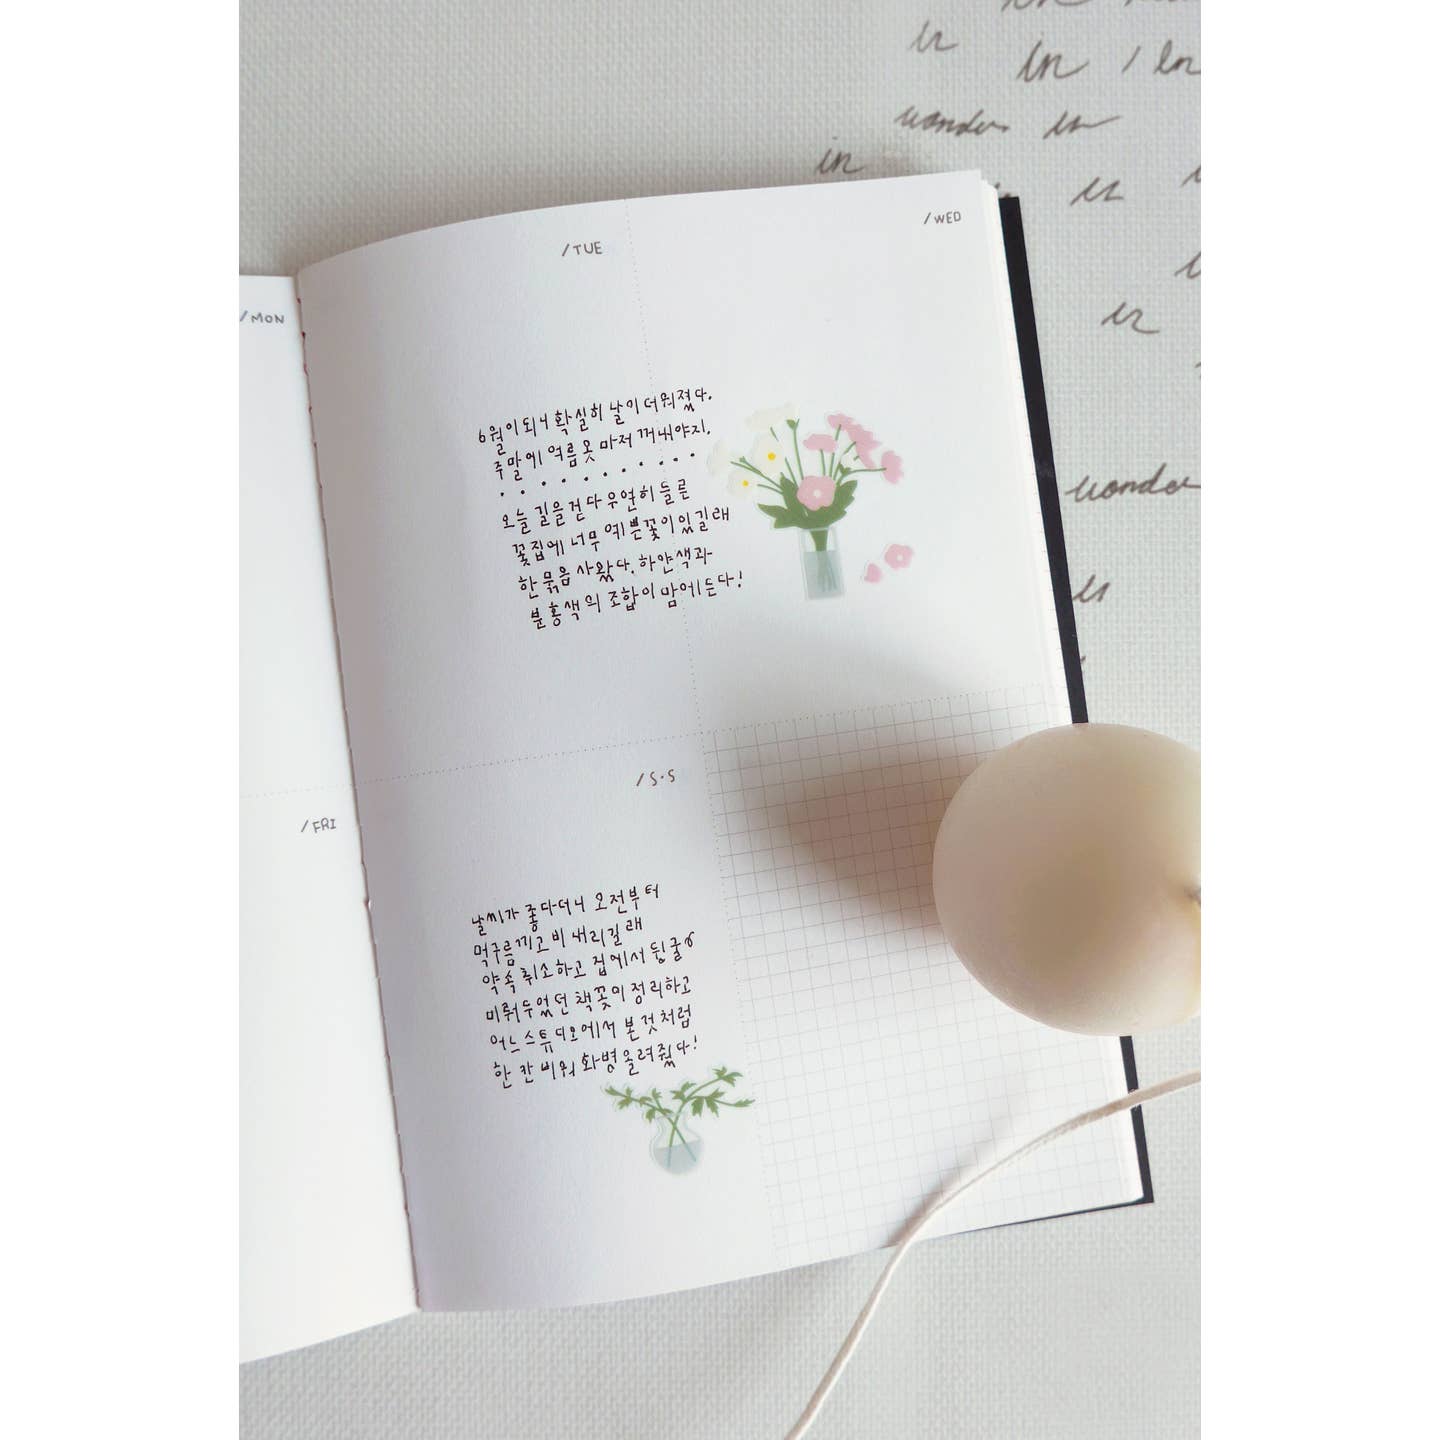 in
is
in / in
wonder is
in
is
/WED
/TUE
/MON
is
6월이 되니 확실히 날이 더워졌다.
주말에 여름옷 마저 꺼내야지.
오늘 길을 걷다 우연히 들른
꽃집에 너무 예쁜 꽃이 있길래
한 묶음 사왔다. 하얀색과
분홍색의 조합이 맘에 든다!
wonder
is
/S·S
/FRI
날씨가 좋다더니 오전부터
먹구름 끼고 비 내리길래
약속 취소하고 집에서 뒹굴
미뤄두었던 책꽂이 정리하고
어느 스튜디오에서 본 것처럼
한 칸 비워 화병 올려줬다!